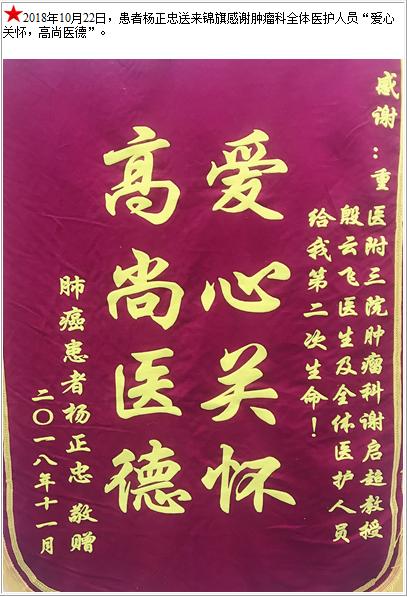 ★2018年10月22日，患者杨正忠送来锦旗感谢肿瘤科全体医护人员“爱心
关怀，高尚医德”。
感谢：重医附三院肿瘤科谢启超教授
殷云飞医生及全体医护人员
给我第二次生命！
爱心关怀
高尚医德
肺癌患者杨正忠 敬赠
二〇一八年十一月